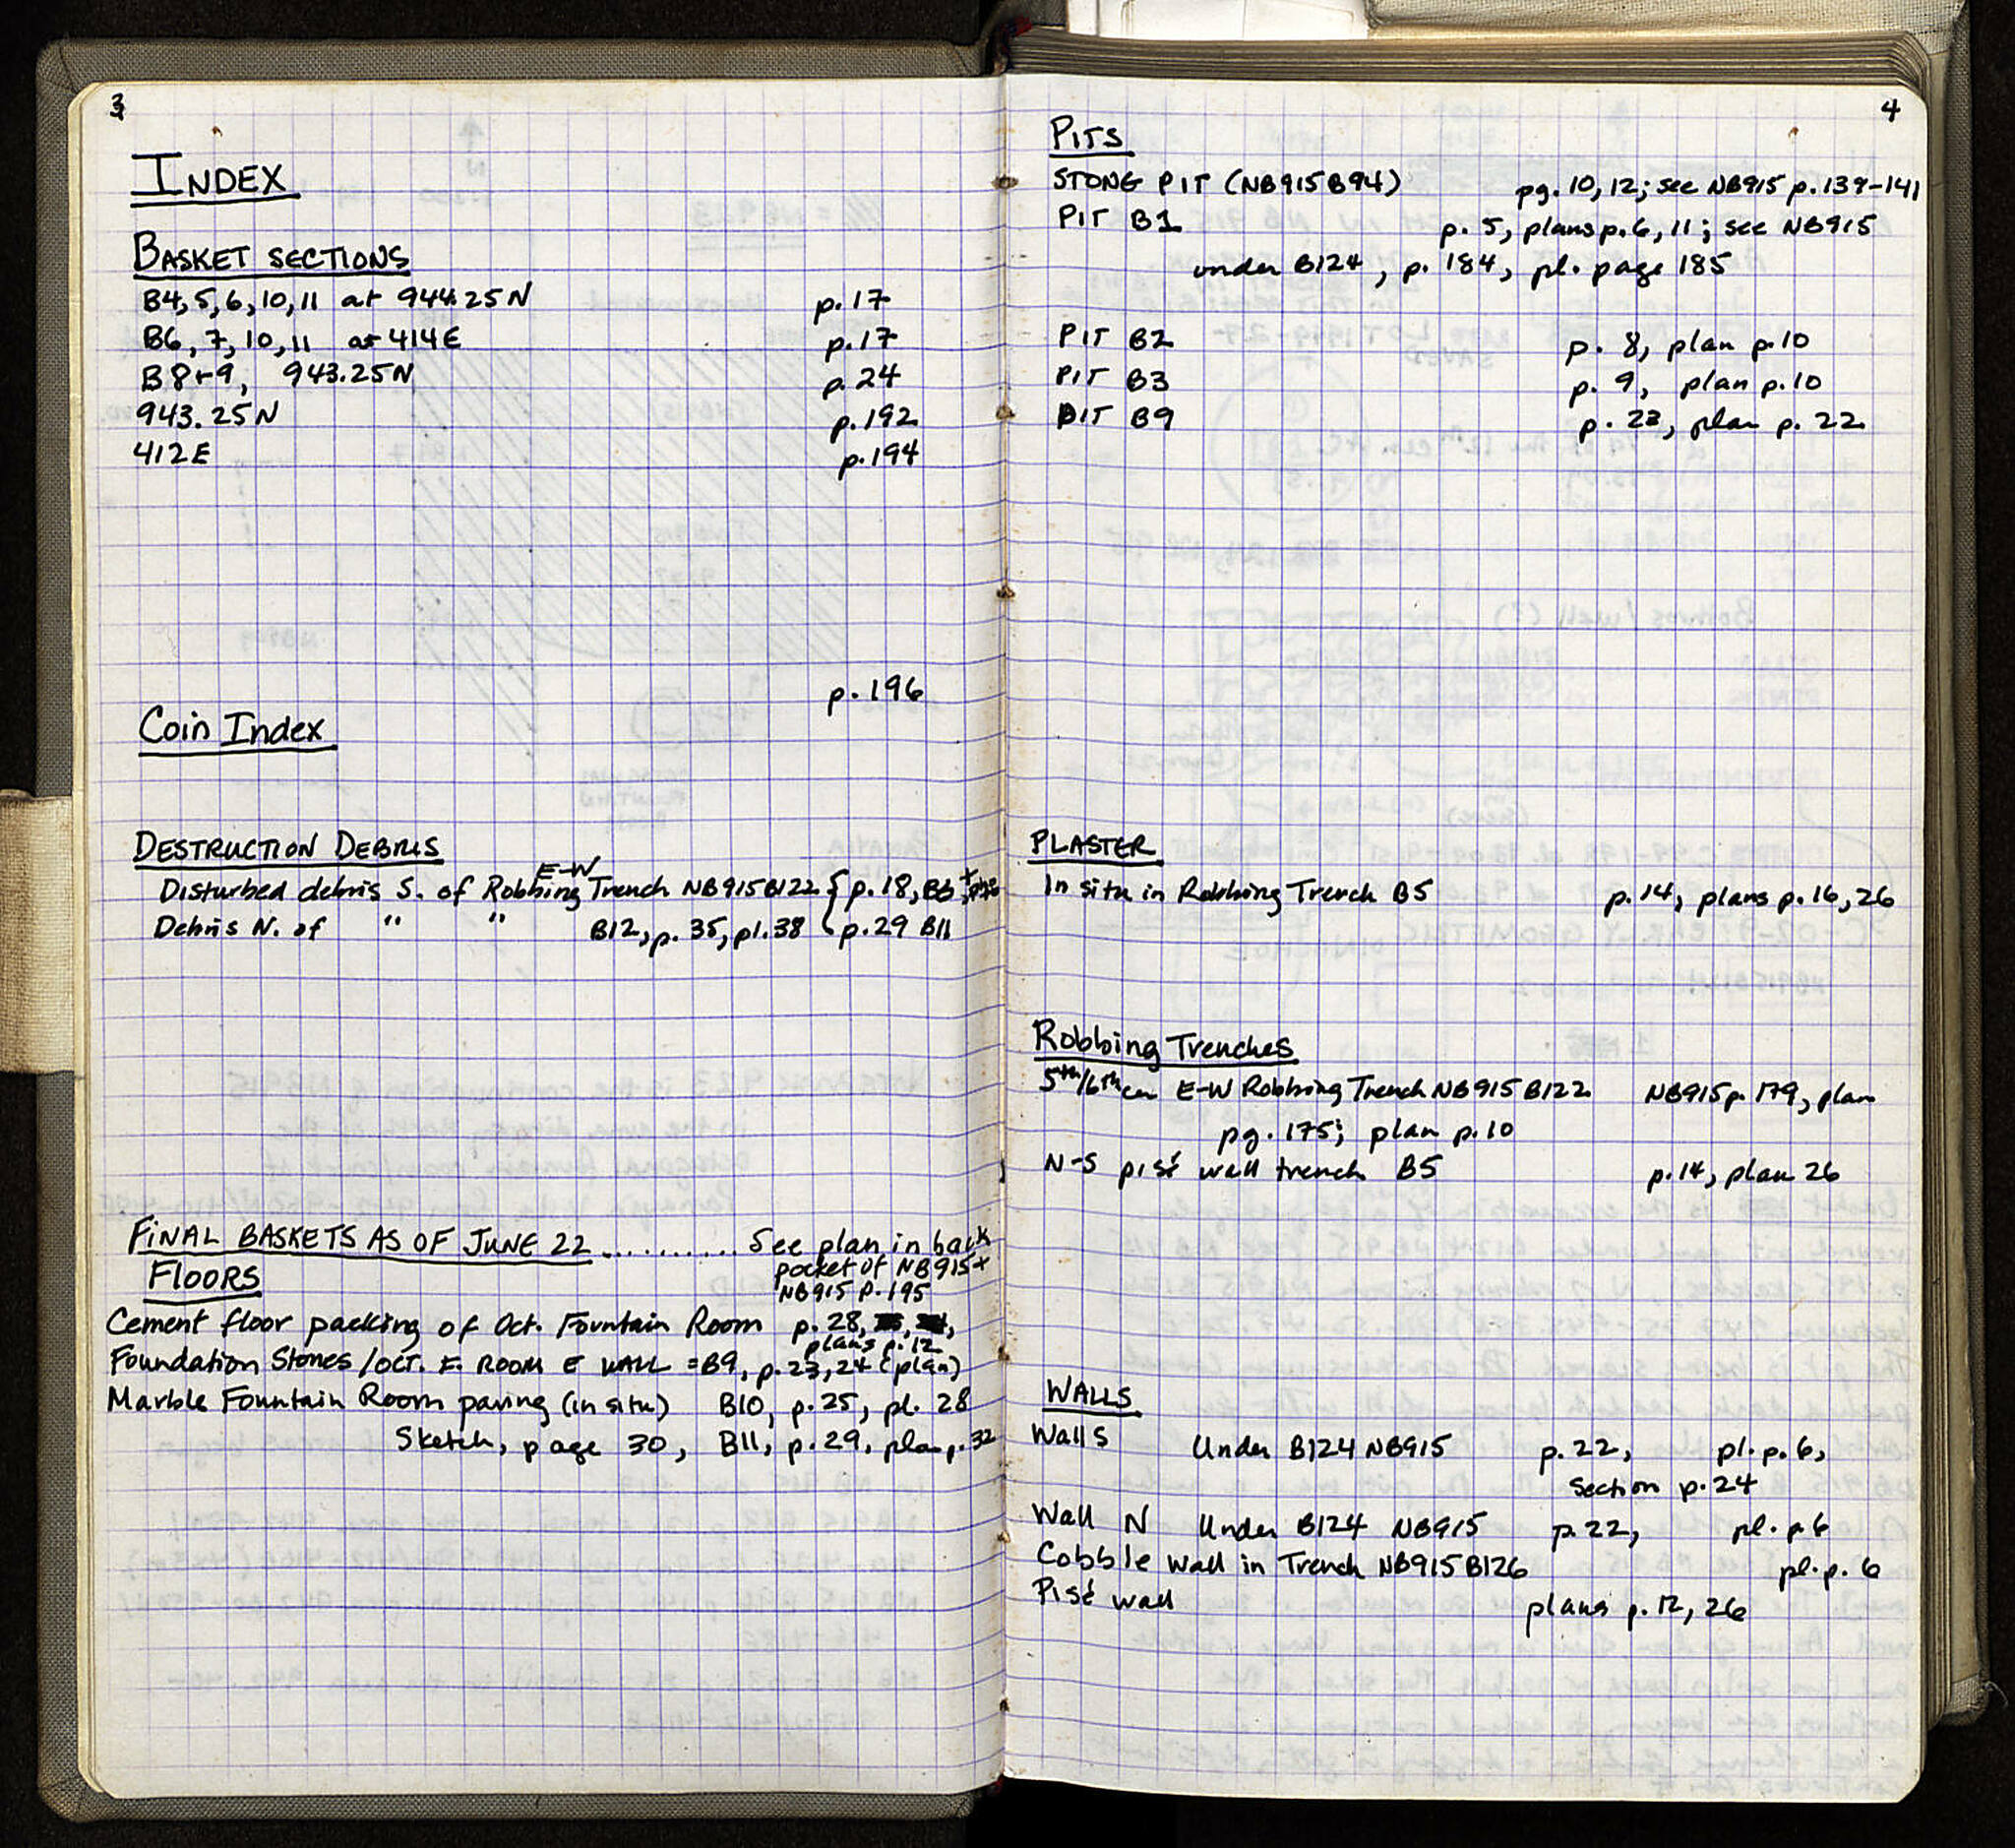 3
INDEX
BASKET SECTIONS
B4,5,6,10,11 at 944.25N p.17
B6,7,10,11 at 414E p.17
B8+9, 943.25N p.24
943.25N p.192
412E p.194
p.196
Coin Index
DESTRUCTION DEBRIS
E-W
Disturbed debris S. of Robbing Trench NB915B122 { p.18, B6
Debris N. of " " B12, p. 35, pl.38 p.29 B11
FINAL BASKETS AS OF JUNE 22 .......... See plan in back
pocket of NB915+
NB915 P.195
FLOORS
Cement floor packing of Oct. Fountain Room p.28,
plans p.12
Foundation Stones /OCT. F. ROOM E WALL =B9, p.23,24 (plan)
Marble Fountain Room paving (in situ) B10, p.25, pl. 28
Sketch, page 30, B11, p.29, plan p.32
4
PITS
STONG PIT (NB915B94) pg. 10,12; see NB915 p.139-141
PIT B1 p. 5, plans p.6,11; see NB915
under B124, p. 184, pl. page 185
PIT B2 p. 8, plan p.10
PIT B3 p. 9, plan p.10
PIT B9 p. 23, plan p. 22
PLASTER
In situ in Robbing Trench B5 p.14, plans p.16,26
Robbing Trenches
5th/6th cen E-W Robbing Trench NB915 B122 NB915 p.179, plan
pg.175; plan p.10
N-S pisé wall trench B5 p.14, plan 26
WALLS
Walls Under B124 NB915 p.22, pl. p.6,
Section p.24
Wall N Under B124 NB915 p.22, pl. p6
Cobble wall in Trench NB915B126 pl. p. 6
Pisé wall plans p.12, 26